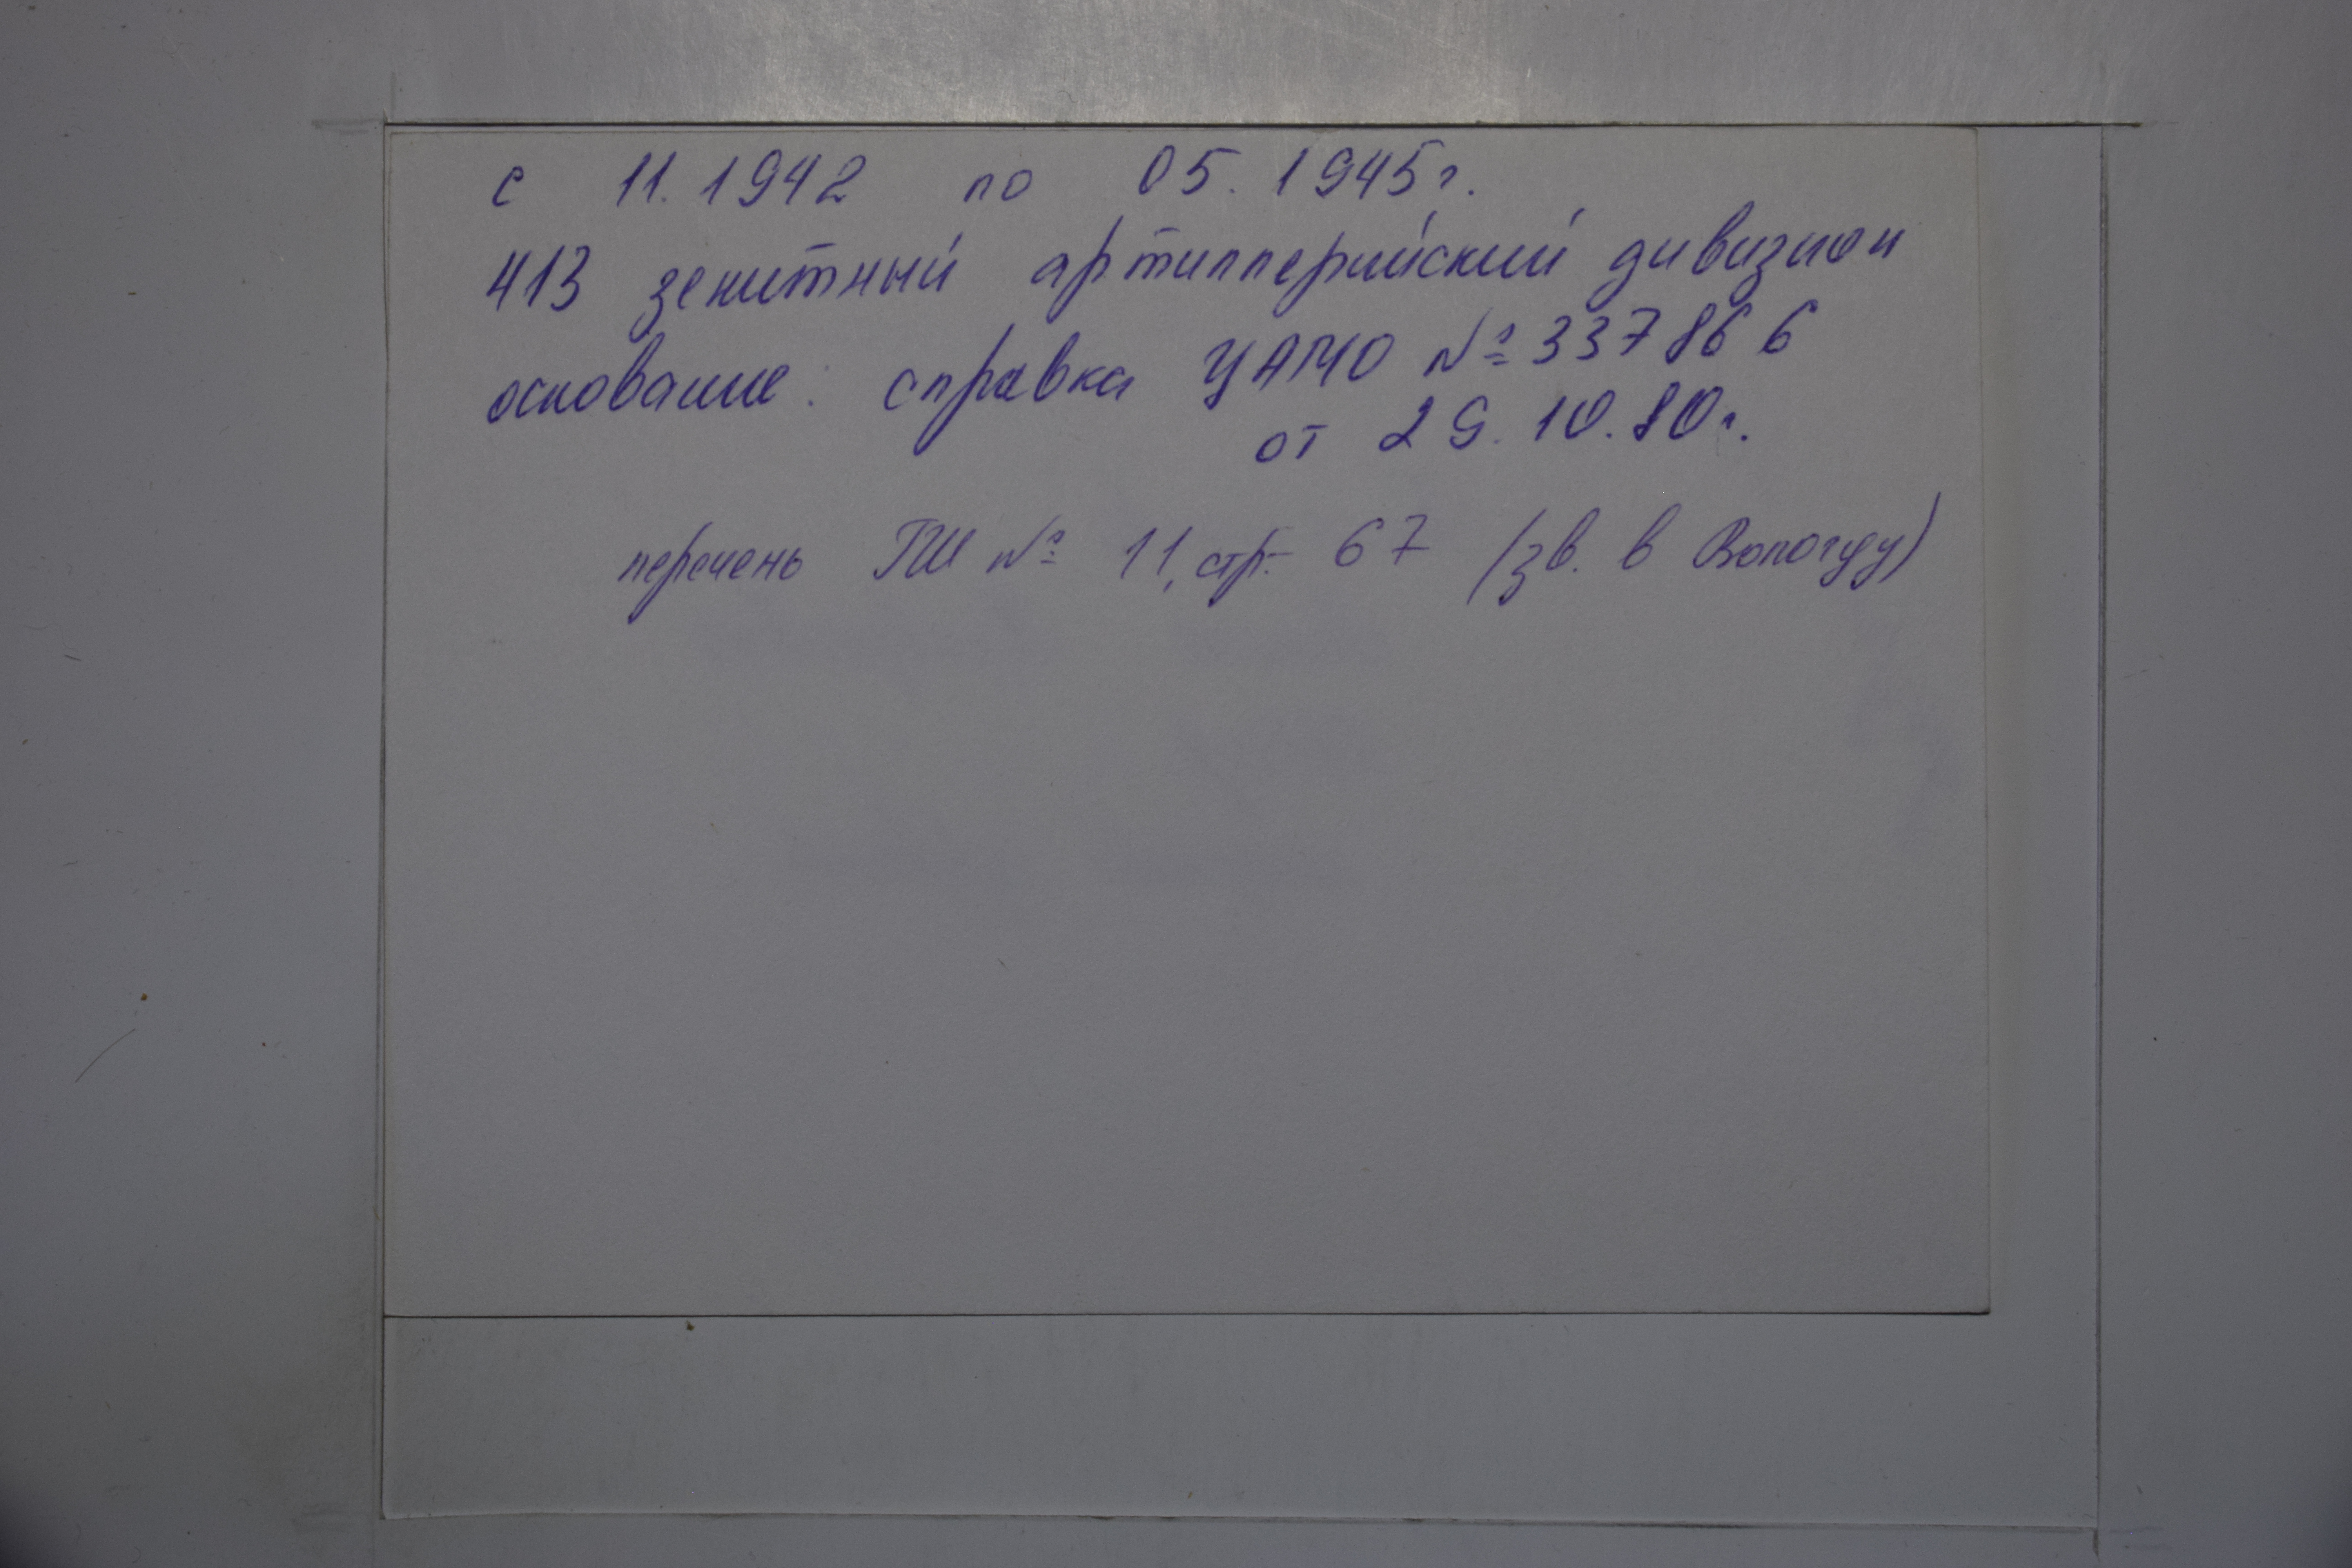 с 11.1942 по 05.1945г.
413 зенитный артиллерийский дивизион
основание: справка ЦАМО № 337866
от 29.10.80г.
перечень ГШ № 11, стр. 67 (зв. в Вологду)